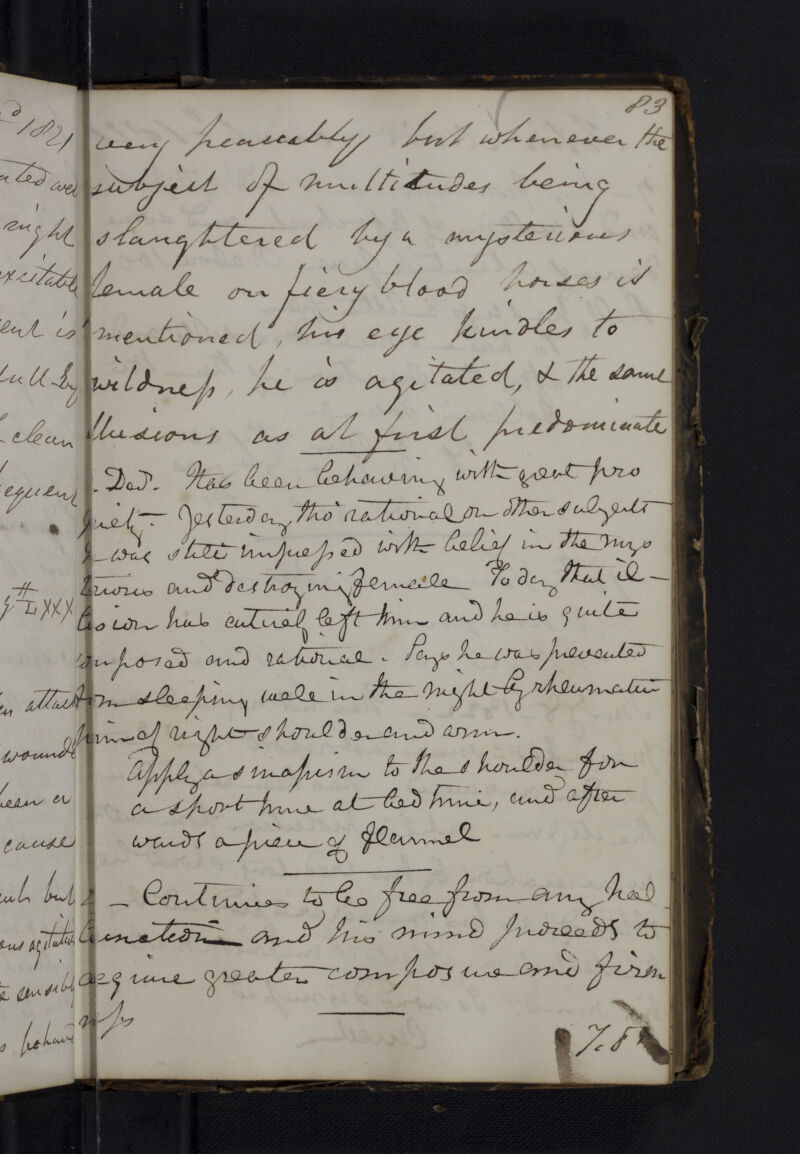 83
very peaceably but whenever the
subject of multitudes being
slaughtered by a mysterious
female on fiery blood horses is
mentioned, his eye kindles to
wildness, he is agitated, & the same
illusions as at first predominate
Has been behaving with great pro
priety. Yesterday, tho' rational on other subjects
he was still impressed with belief in the mys
terious and destroying female To day that il-
lusion has entirely left him and he is quite
composed and rational. Says he was prevented
from sleeping well in the night by rheumatic
pain of right shoulder and arm.
Apply a sinapism to the shoulder for
a short time at bed time, and after
wards a piece of flannel
- Continues to be free from any hal
lucination and his mind proceeds to
acquire greater composure and firm
ness
1821
night
excitable
ent is
full
clean
equent
LXXX
attack
wounds
been a
cause
but
ous agitation
sensibly
behav